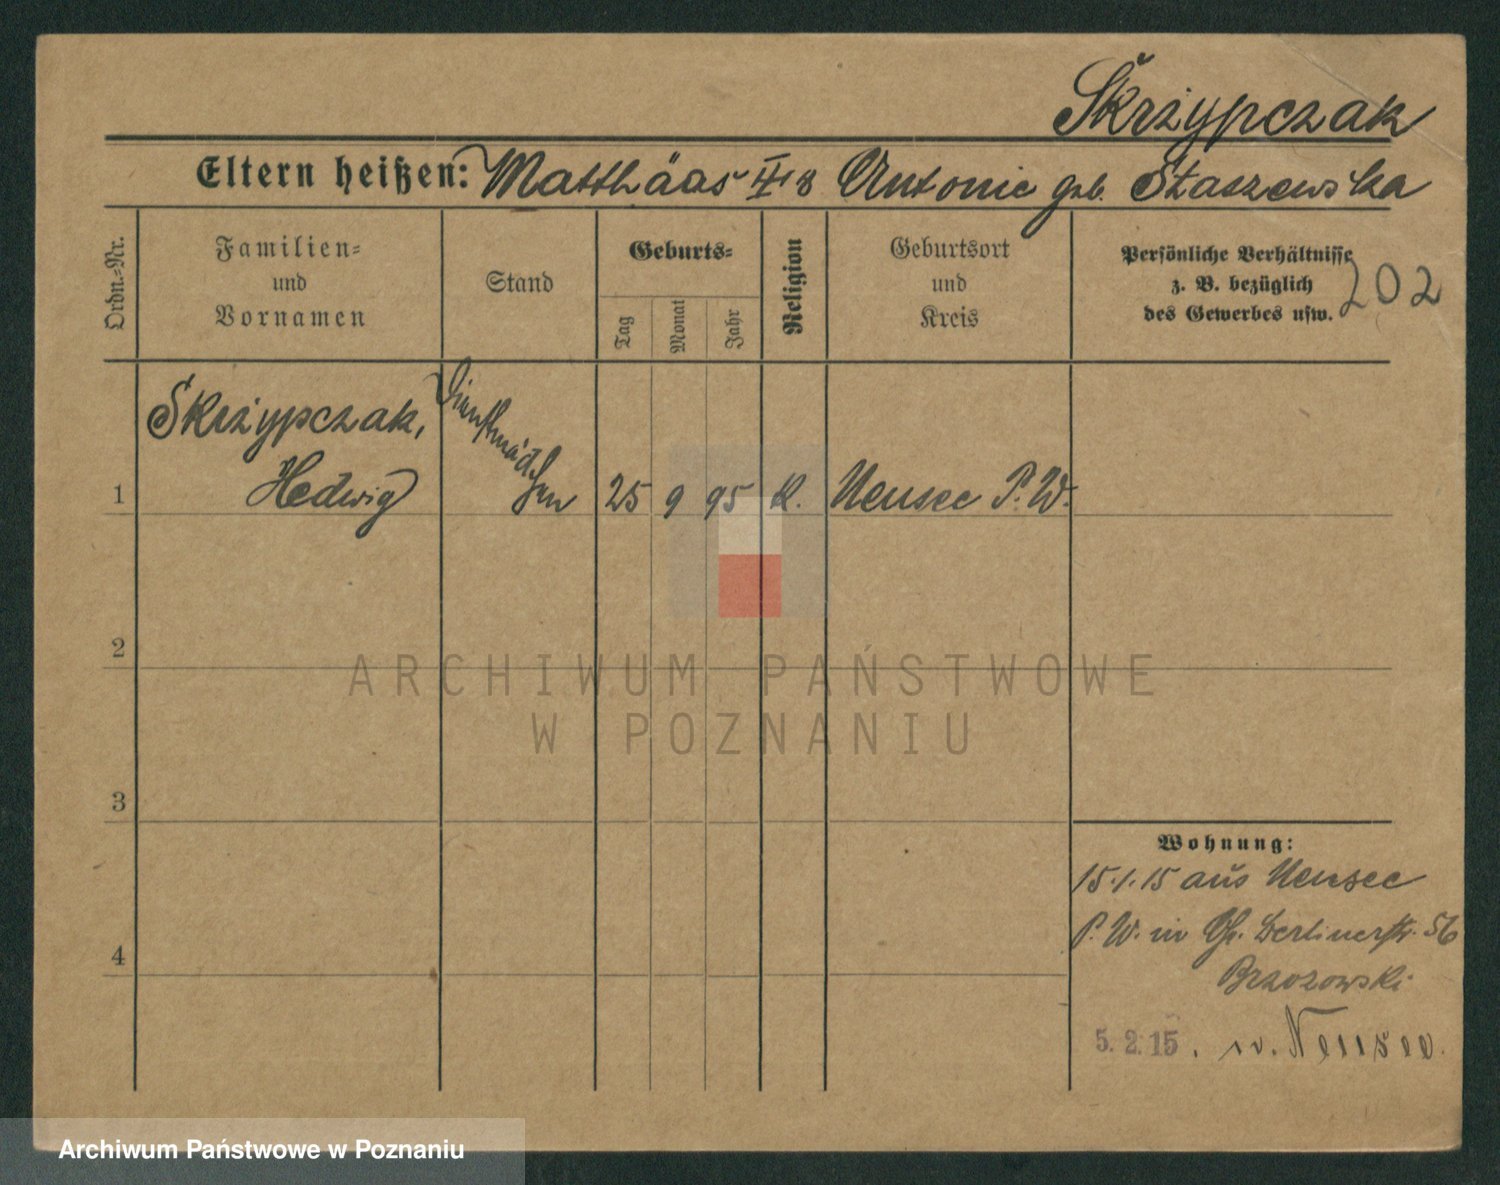 Skrzypczak
Eltern heißen: Matthäas Antonie geb. Staszewska
Ordn.=Nr.
Familien=
und
Vornamen
Stand
Geburts=
Tag
Monat
Jahr
Religion
Geburtsort
und
Kreis
Persönliche Verhältnisse
z. B. bezüglich
des Gewerbes usw.
202
1
Skrzypczak,
Hedwig
Dienstmädchen
25 9 95 K. Neusee P. W.
2
3
4
ARCHIWUM PAŃSTWOWE
W POZNANIU
Wohnung:
15.1.15 aus Neusee
P. W. in Berlinerstr. 56
Brzozowski
5. 2. 15. n. Neusee.
Archiwum Państwowe w Poznaniu